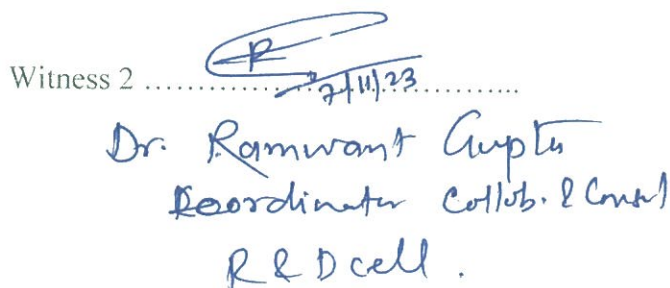 Witness 2 ...........................................
7/11/23
Dr. Ramwant Gupta
Coordinator Collob. & Consul
R & D cell.